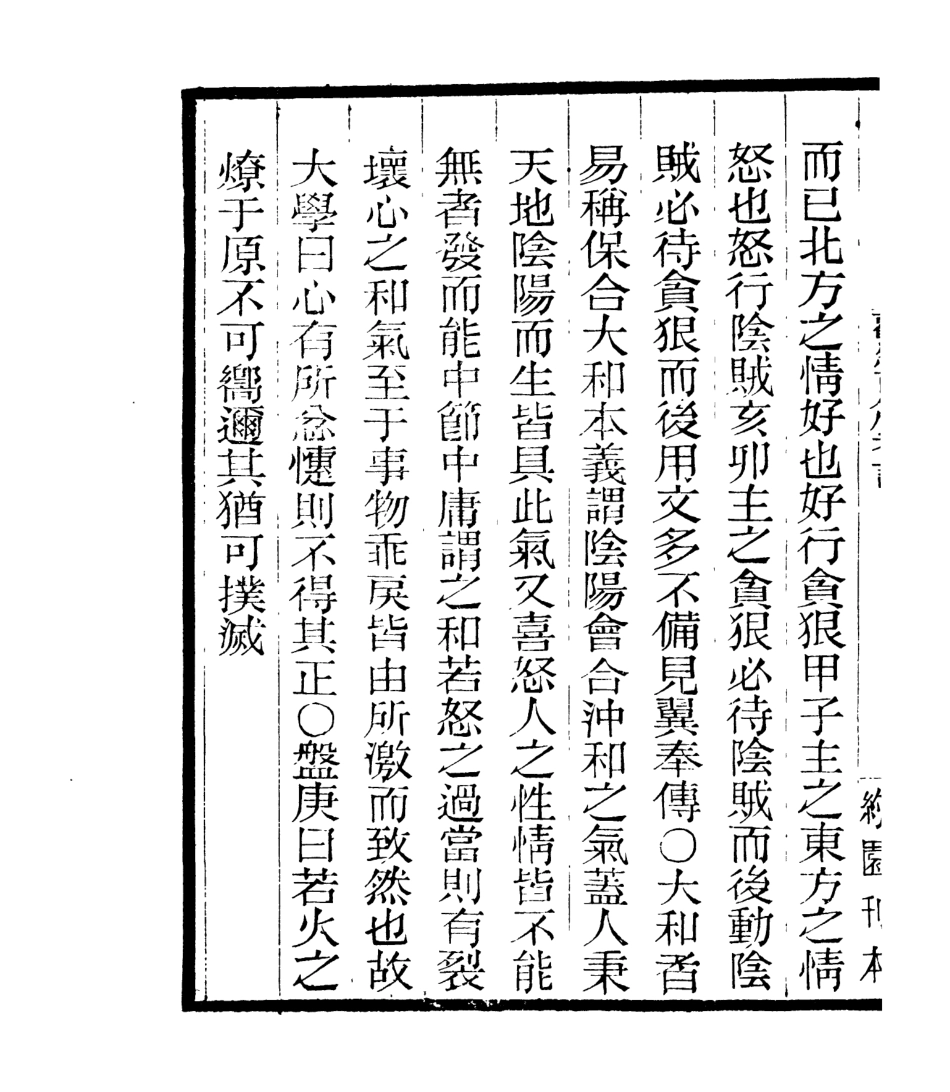 而已北方之情好也好行貪狠甲子主之東方之情
怒也怒行陰賊亥卯主之貪狠必待陰賊而後動陰
賊必待貪狠而後用文多不備見翼奉傳○大和者
易稱保合大和本義謂陰陽會合沖和之氣蓋人秉
天地陰陽而生皆具此氣又喜怒人之性情皆不能
無者發而能中節中庸謂之和若怒之過當則有裂
壞心之和氣至于事物乖戾皆由所激而致然也故
大學曰心有所忿懥則不得其正○盤庚曰若火之
燎于原不可嚮邇其猶可撲滅
約園刊本